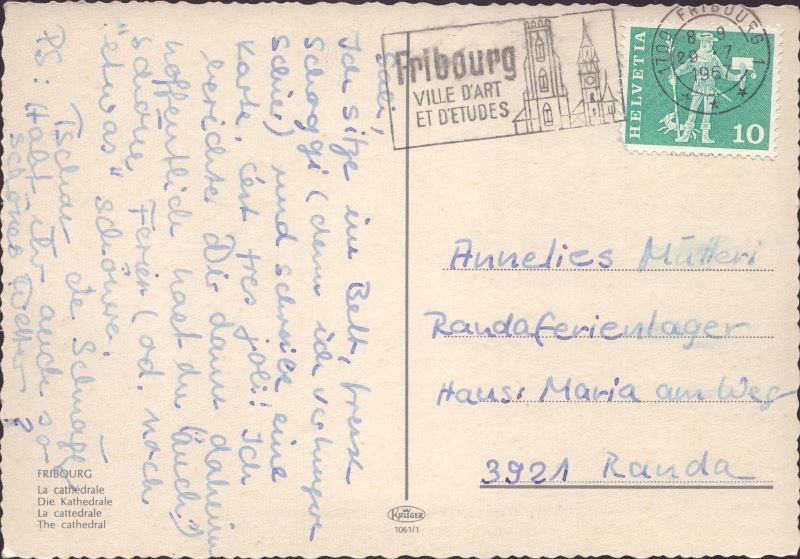 Sali,
Ich sitze im Bett, fresse
Schoggi (denn ich
schier) und schreibe eine
Karte, c'est très joli! Ich
berichte Dir dann daheim
hoffentlich hast du (auch?)
schöne Ferien (od. noch
"etwas" schöner.
Tschau de
PS: Habt ihr auch so
schönes Wetter?
Fribourg
VILLE D'ART
ET D'ETUDES
1700 FRIBOURG 1
8-9
29 7
HELVETIA
10
Annelies
Randaferienlager
Haus: Maria am Weg
3921 Randa
FRIBOURG
La cathédrale
Die Kathedrale
La cattedrale
The cathedral
KRÜGER
1061/1